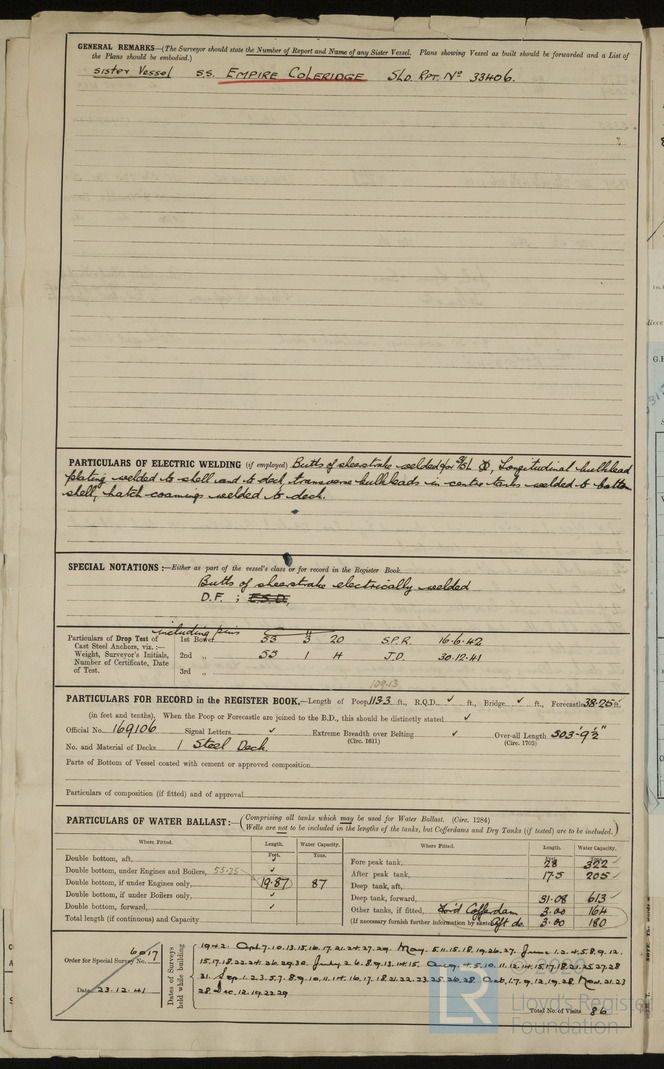 GENERAL REMARKS—(The Surveyor should state the Number of Report and Name of any Sister Vessel. Plans showing Vessel as built should be forwarded and a List of
the Plans should be embodied.)
Sister Vessel S.S. EMPIRE COLERIDGE Sld. Rpt. No 33406.
PARTICULARS OF ELECTRIC WELDING (if employed) Butts of sheerstrake welded for Longitudinal bulkhead
plating welded to shell and to deck, transverse bulkheads in centre tanks welded to bottom
shell, hatch coamings welded to deck.
SPECIAL NOTATIONS:—Either as part of the vessel's class or for record in the Register Book.
Butts of sheerstrake electrically welded
D.F. ; E.S.D.,
including pins
Particulars of Drop Test of 1st Bower 53 3 20 S.P.R. 16.6.42
Cast Steel Anchors, viz. :—
Weight, Surveyor's Initials, 2nd „ 53 1 14 J.D. 30.12.41
Number of Certificate, Date
of Test. 3rd „
109.13
PARTICULARS FOR RECORD in the REGISTER BOOK.—Length of Poop 113.3 ft., R.Q.D. ✓ ft., Bridge ✓ ft., Forecastle 38.25 ft.
(in feet and tenths). When the Poop or Forecastle are joined to the B.D., this should be distinctly stated ✓
Official No. 169106 Signal Letters ✓ Extreme Breadth over Belting ✓ Over-all Length 503'-9½"
(Circ. 1611) (Circ. 1703)
No. and Material of Decks 1 Steel Deck.
Parts of Bottom of Vessel coated with cement or approved composition
Particulars of composition (if fitted) and of approval
PARTICULARS OF WATER BALLAST:—(Comprising all tanks which may be used for Water Ballast. (Circ. 1284)
Wells are not to be included in the lengths of the tanks, but Cofferdams and Dry Tanks (if tested) are to be included.)
Where Fitted. Length. Water Capacity. Where Fitted. Length. Water Capacity.
Feet. Tons.
Double bottom, aft, ✓ Fore peak tank, 28 322
Double bottom, under Engines and Boilers, 53.25 ✓ After peak tank, 17.5 205
Double bottom, if under Engines only, 19.87 87 Deep tank, aft,
Double bottom, if under Boilers only, ✓ Deep tank, forward, 31.08 613
Double bottom, forward, ✓ Other tanks, if fitted, For'd Cofferdam 3.00 164
Total length (if continuous) and Capacity (If necessary furnish further information by sketch) Aft do. 3.00 180
Order for Special Survey No. 6017
Date 23.12.41
Dates of Surveys held while building
1942. Apl. 7.10.13.15.16.17.21.24.27.29. May. 5.11.15.18.19.26.27. June. 1.2.4.5.8.9.12.
15.17.18.22.24.26.29.30. July 2.6.8.9.13.14.15. Aug. 4.5.10.11.12.14.15.17.18.21.25.27.28
31. Sep. 1.2.3.5.7.8.9.10.11.14.16.17.18.21.22.23.25.26.28 Oct. 1.7.9.12.19.28 Nov. 21.23
28. Dec. 12.19.22.29
Total No. of Visits 86
© 2020
LR
Lloyd's Register
Foundation